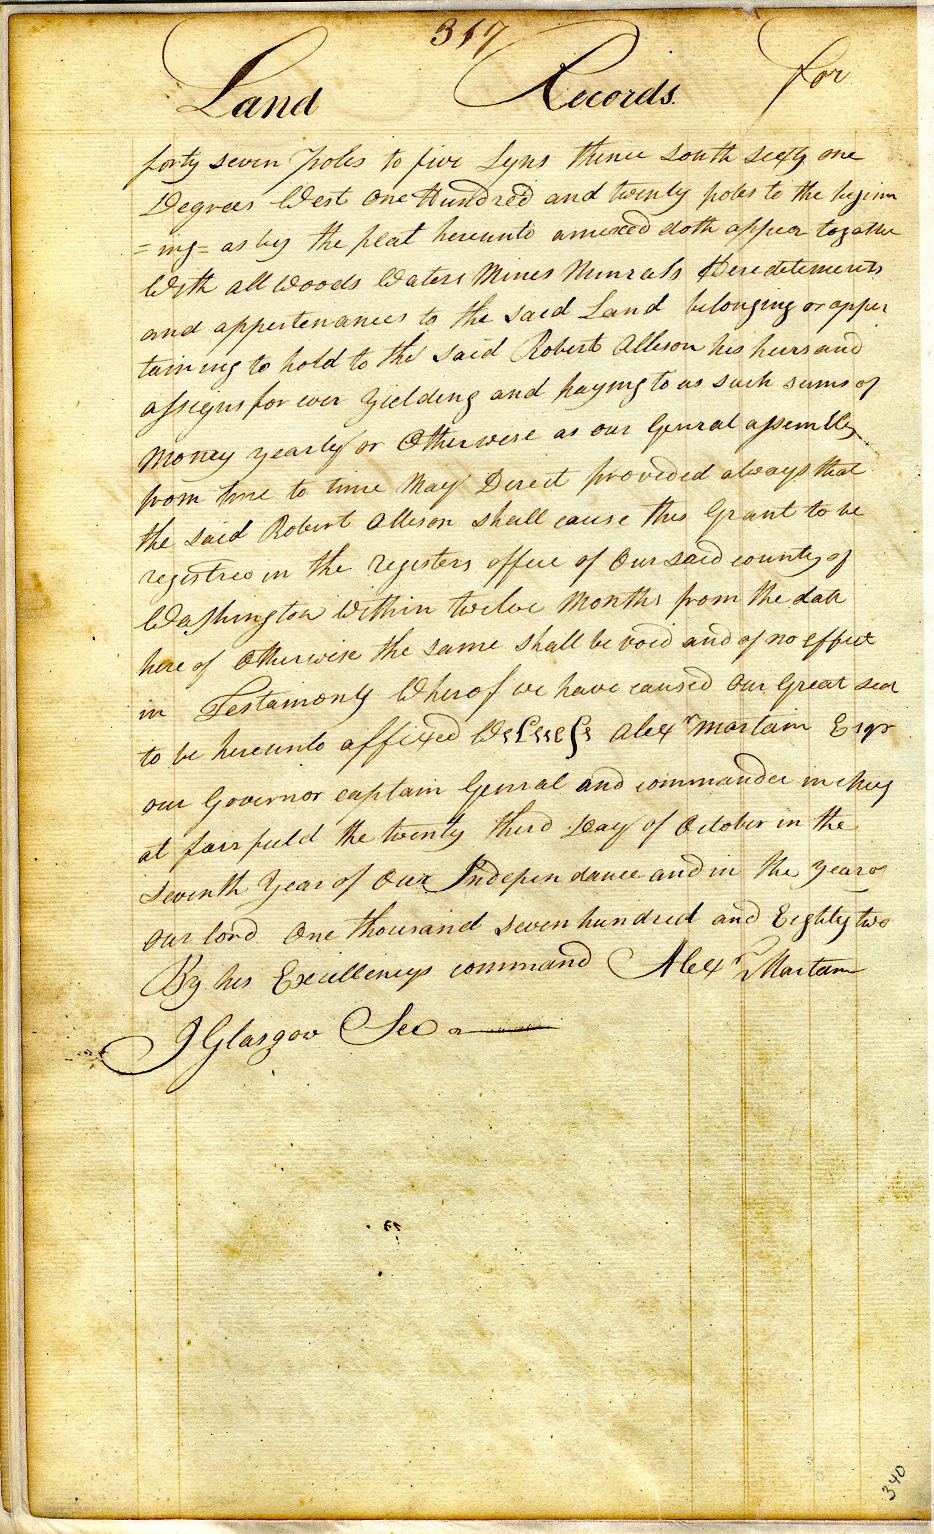 317
Land Records for
forty seven poles to five Lyns thence South sixty one
Degrees West One Hundred and twenty poles to the beginn
=ing= as by the plat hereunto annexed doth appear togather
With all Woods Waters Mines Minrals Hereditements
and appertenances to the said Land belonging or apper
taining to hold to the said Robert Allison his heirs and
assigns for ever Yielding and paying to us such sums of
Money yearly or Otherwise as our Genral assembly
from time to time May Derect provided always that
the said Robert Allison shall cause this Grant to be
registred in the registers office of Our said county of
Washington Within twelve Months from the date
here of Otherwise the same shall be void and of no effect
in Testamony Wherof we have caused our Great seal
to be hereunto affixed Witness Alexr Martain Esqr
our Governor captain Genral and commander in chief
at fairfield the twenty third Day of October in the
Seventh Year of Our Independance and in the Year of
our lord One thousand seven hundred and Eighty two
By his Excellencys command Alexr Martain
J Glasgow Sec
340